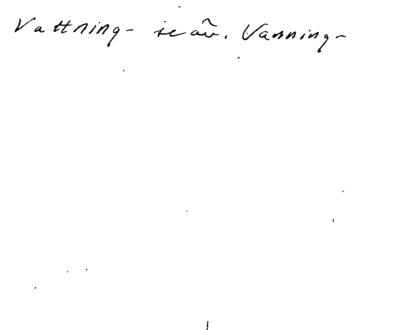 Vattning- se äv. Vanning-